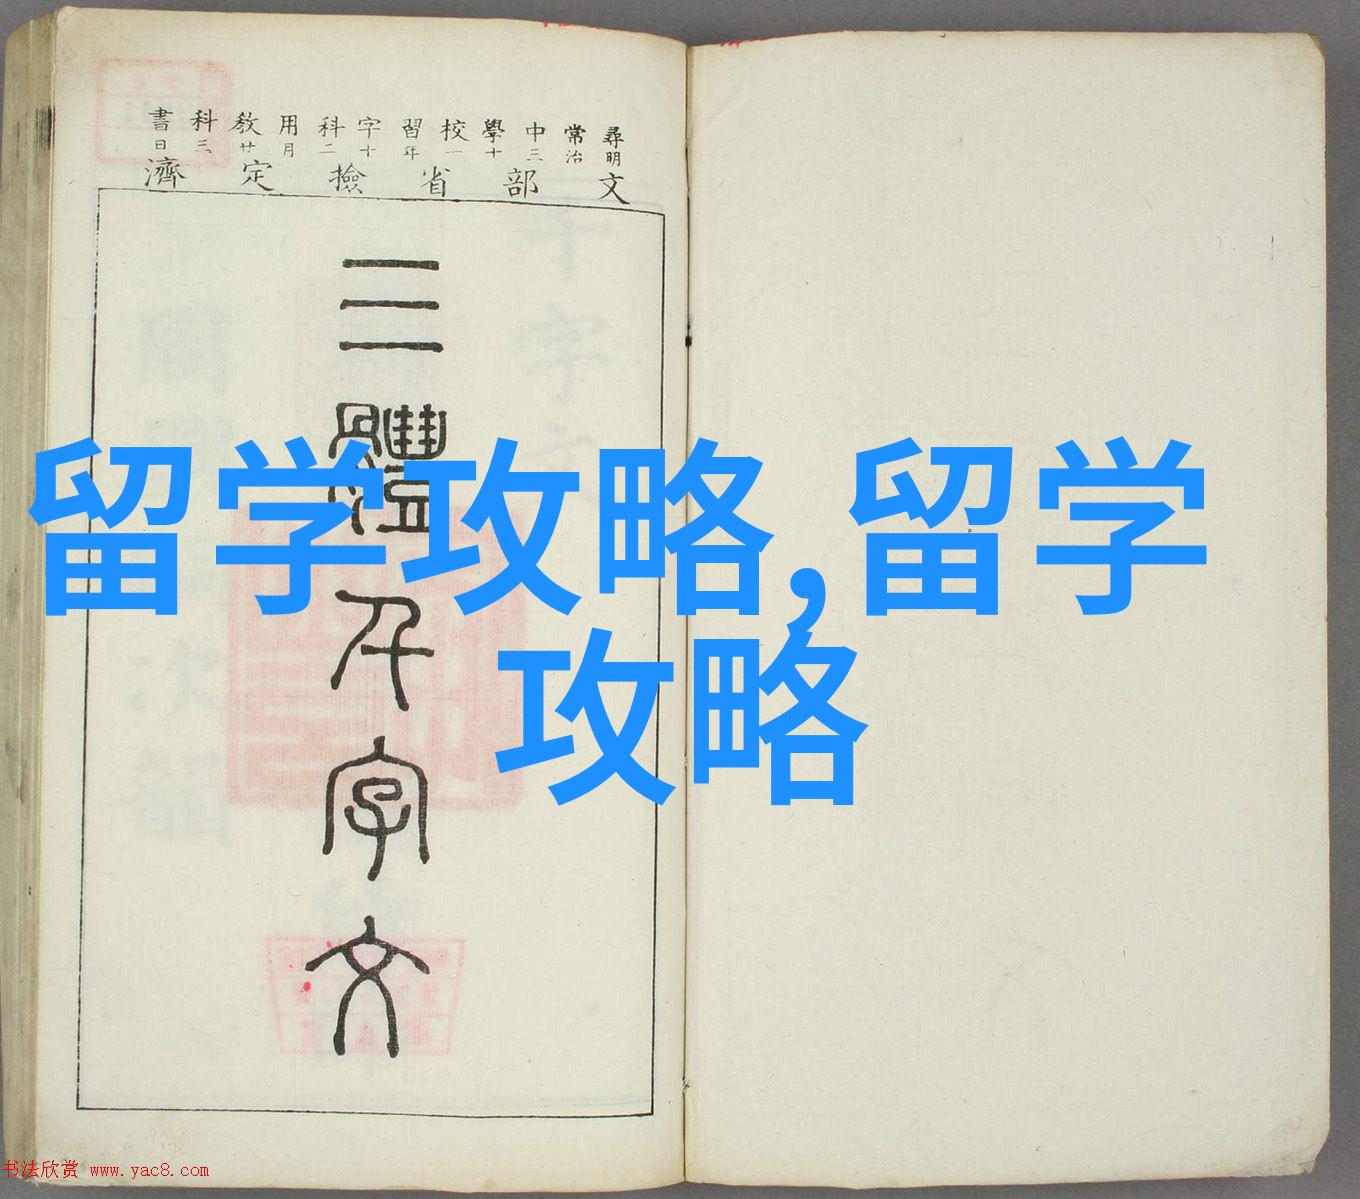 尋常中學校習字科用教科書
明治三十一年十二月廿三日
文部省撿定濟
三體千字文
留学攻略,留学
攻略
书法欣赏 www.yac8.com